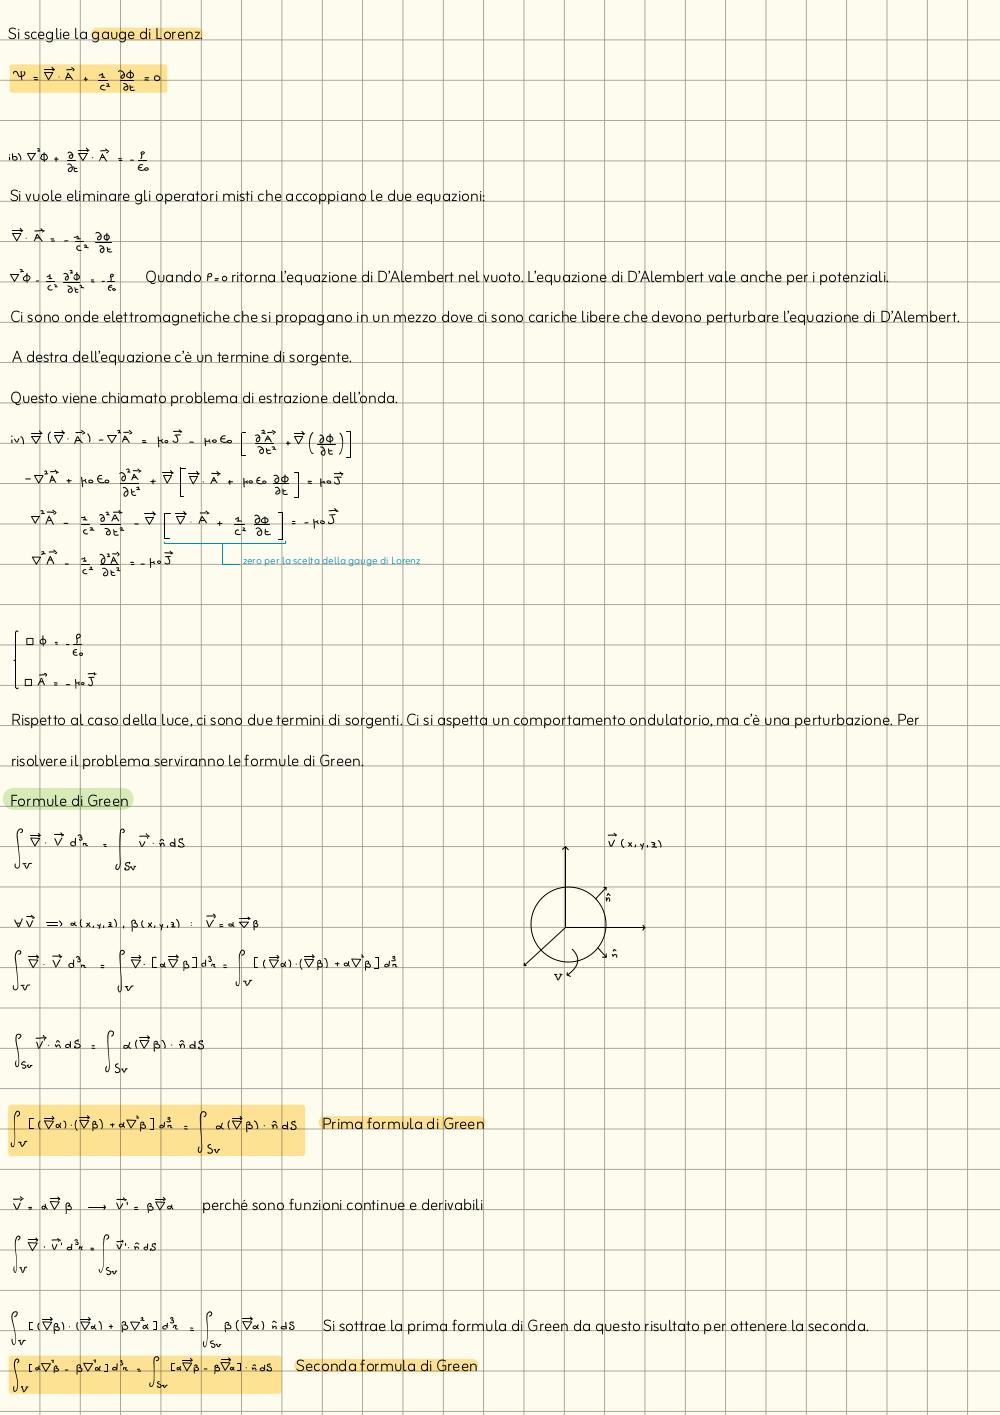 Si sceglie la gauge di Lorenz.
Ψ = ∇⃗ · A⃗ + 1/c² ∂Φ/∂t = 0
ib) ∇²Φ + ∂/∂t ∇⃗ · A⃗ = - ρ/ε₀
Si vuole eliminare gli operatori misti che accoppiano le due equazioni:
∇⃗ · A⃗ = - 1/c² ∂Φ/∂t
∇²Φ - 1/c² ∂²Φ/∂t² = - ρ/ε₀ Quando ρ=0 ritorna l'equazione di D'Alembert nel vuoto. L'equazione di D'Alembert vale anche per i potenziali.
Ci sono onde elettromagnetiche che si propagano in un mezzo dove ci sono cariche libere che devono perturbare l'equazione di D'Alembert.
A destra dell'equazione c'è un termine di sorgente.
Questo viene chiamato problema di estrazione dell'onda.
iv) ∇⃗ (∇⃗ · A⃗) - ∇²A⃗ = μ₀ J⃗ - μ₀ ε₀ [ ∂²A⃗/∂t² + ∇⃗ (∂Φ/∂t) ]
-∇²A⃗ + μ₀ ε₀ ∂²A⃗/∂t² + ∇⃗ [ ∇⃗ · A⃗ + μ₀ ε₀ ∂Φ/∂t ] = μ₀ J⃗
∇²A⃗ - 1/c² ∂²A⃗/∂t² - ∇⃗ [ ∇⃗ · A⃗ + 1/c² ∂Φ/∂t ] = - μ₀ J⃗
∇²A⃗ - 1/c² ∂²A⃗/∂t² = - μ₀ J⃗ zero per la scelta della gauge di Lorenz
□ Φ = - ρ/ε₀
□ A⃗ = - μ₀ J⃗
Rispetto al caso della luce, ci sono due termini di sorgenti. Ci si aspetta un comportamento ondulatorio, ma c'è una perturbazione. Per
risolvere il problema serviranno le formule di Green.
Formule di Green
∫_V ∇⃗ · V⃗ d³r = ∫_Sv V⃗ · n̂ dS
V⃗ (x,y,z)
n̂
n̂
V
∀V⃗ ⟹ α(x,y,z), β(x,y,z) : V⃗ = α ∇⃗ β
∫_V ∇⃗ · V⃗ d³r = ∫_V ∇⃗ · [α∇⃗ β] d³r = ∫_V [(∇⃗α)·(∇⃗β) + α∇²β] d³r
∫_Sv V⃗ · n̂ dS = ∫_Sv α(∇⃗ β) · n̂ dS
∫_V [(∇⃗α)·(∇⃗β) + α∇²β] d³r = ∫_Sv α(∇⃗β) · n̂ dS Prima formula di Green
V⃗ = α∇⃗ β ⟶ V⃗' = β∇⃗α perché sono funzioni continue e derivabili
∫_V ∇⃗ · V⃗' d³r = ∫_Sv V⃗' · n̂ dS
∫_V [(∇⃗β)·(∇⃗α) + β∇²α] d³r = ∫_Sv β(∇⃗α) n̂ dS Si sottrae la prima formula di Green da questo risultato per ottenere la seconda.
∫_V [α∇²β - β∇²α] d³r = ∫_Sv [α∇⃗β - β∇⃗α] · n̂ dS Seconda formula di Green